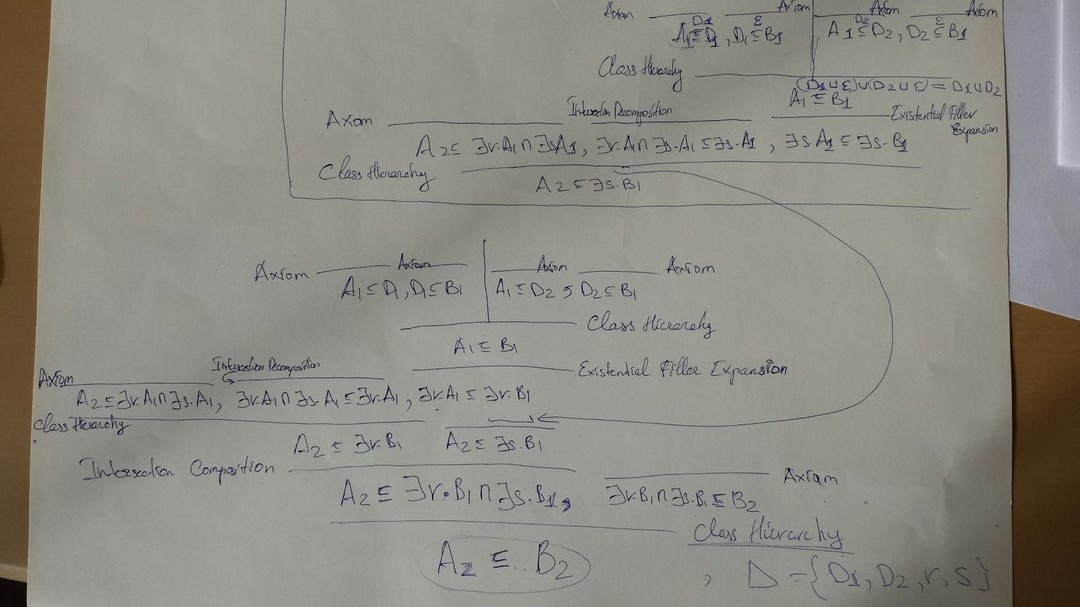 Axiom D1 ε Axiom Axiom D2 ε Axiom
A1 ⊑ D1 , D1 ⊑ B1 A1 ⊑ D2 , D2 ⊑ B1
Class Hierarchy
(D1 ∪ ε) ∪ (D2 ∪ ε) = D1 ∪ D2
A1 ⊑ B1
Axiom Intersection Decomposition Existential Filler Expansion
A2 ⊑ ∃r.A1 ⊓ ∃s.A1 , ∃r.A1 ⊓ ∃s.A1 ⊑ ∃s.A1 , ∃s.A1 ⊑ ∃s.B1
Class Hierarchy
A2 ⊑ ∃s.B1
Axiom Axiom Axiom Axiom
A1 ⊑ D1 , D1 ⊑ B1 A1 ⊑ D2 , D2 ⊑ B1
Class Hierarchy
A1 ⊑ B1
Existential Filler Expansion
Axiom Intersection Decomposition
A2 ⊑ ∃r.A1 ⊓ ∃s.A1 , ∃r.A1 ⊓ ∃s.A1 ⊑ ∃r.A1 , ∃r.A1 ⊑ ∃r.B1
Class Hierarchy
A2 ⊑ ∃r.B1 A2 ⊑ ∃s.B1
Intersection Composition
A2 ⊑ ∃r.B1 ⊓ ∃s.B1 , ∃r.B1 ⊓ ∃s.B1 ⊑ B2 Axiom
Class Hierarchy
A2 ⊑ B2 , D = {D1, D2, r, s}